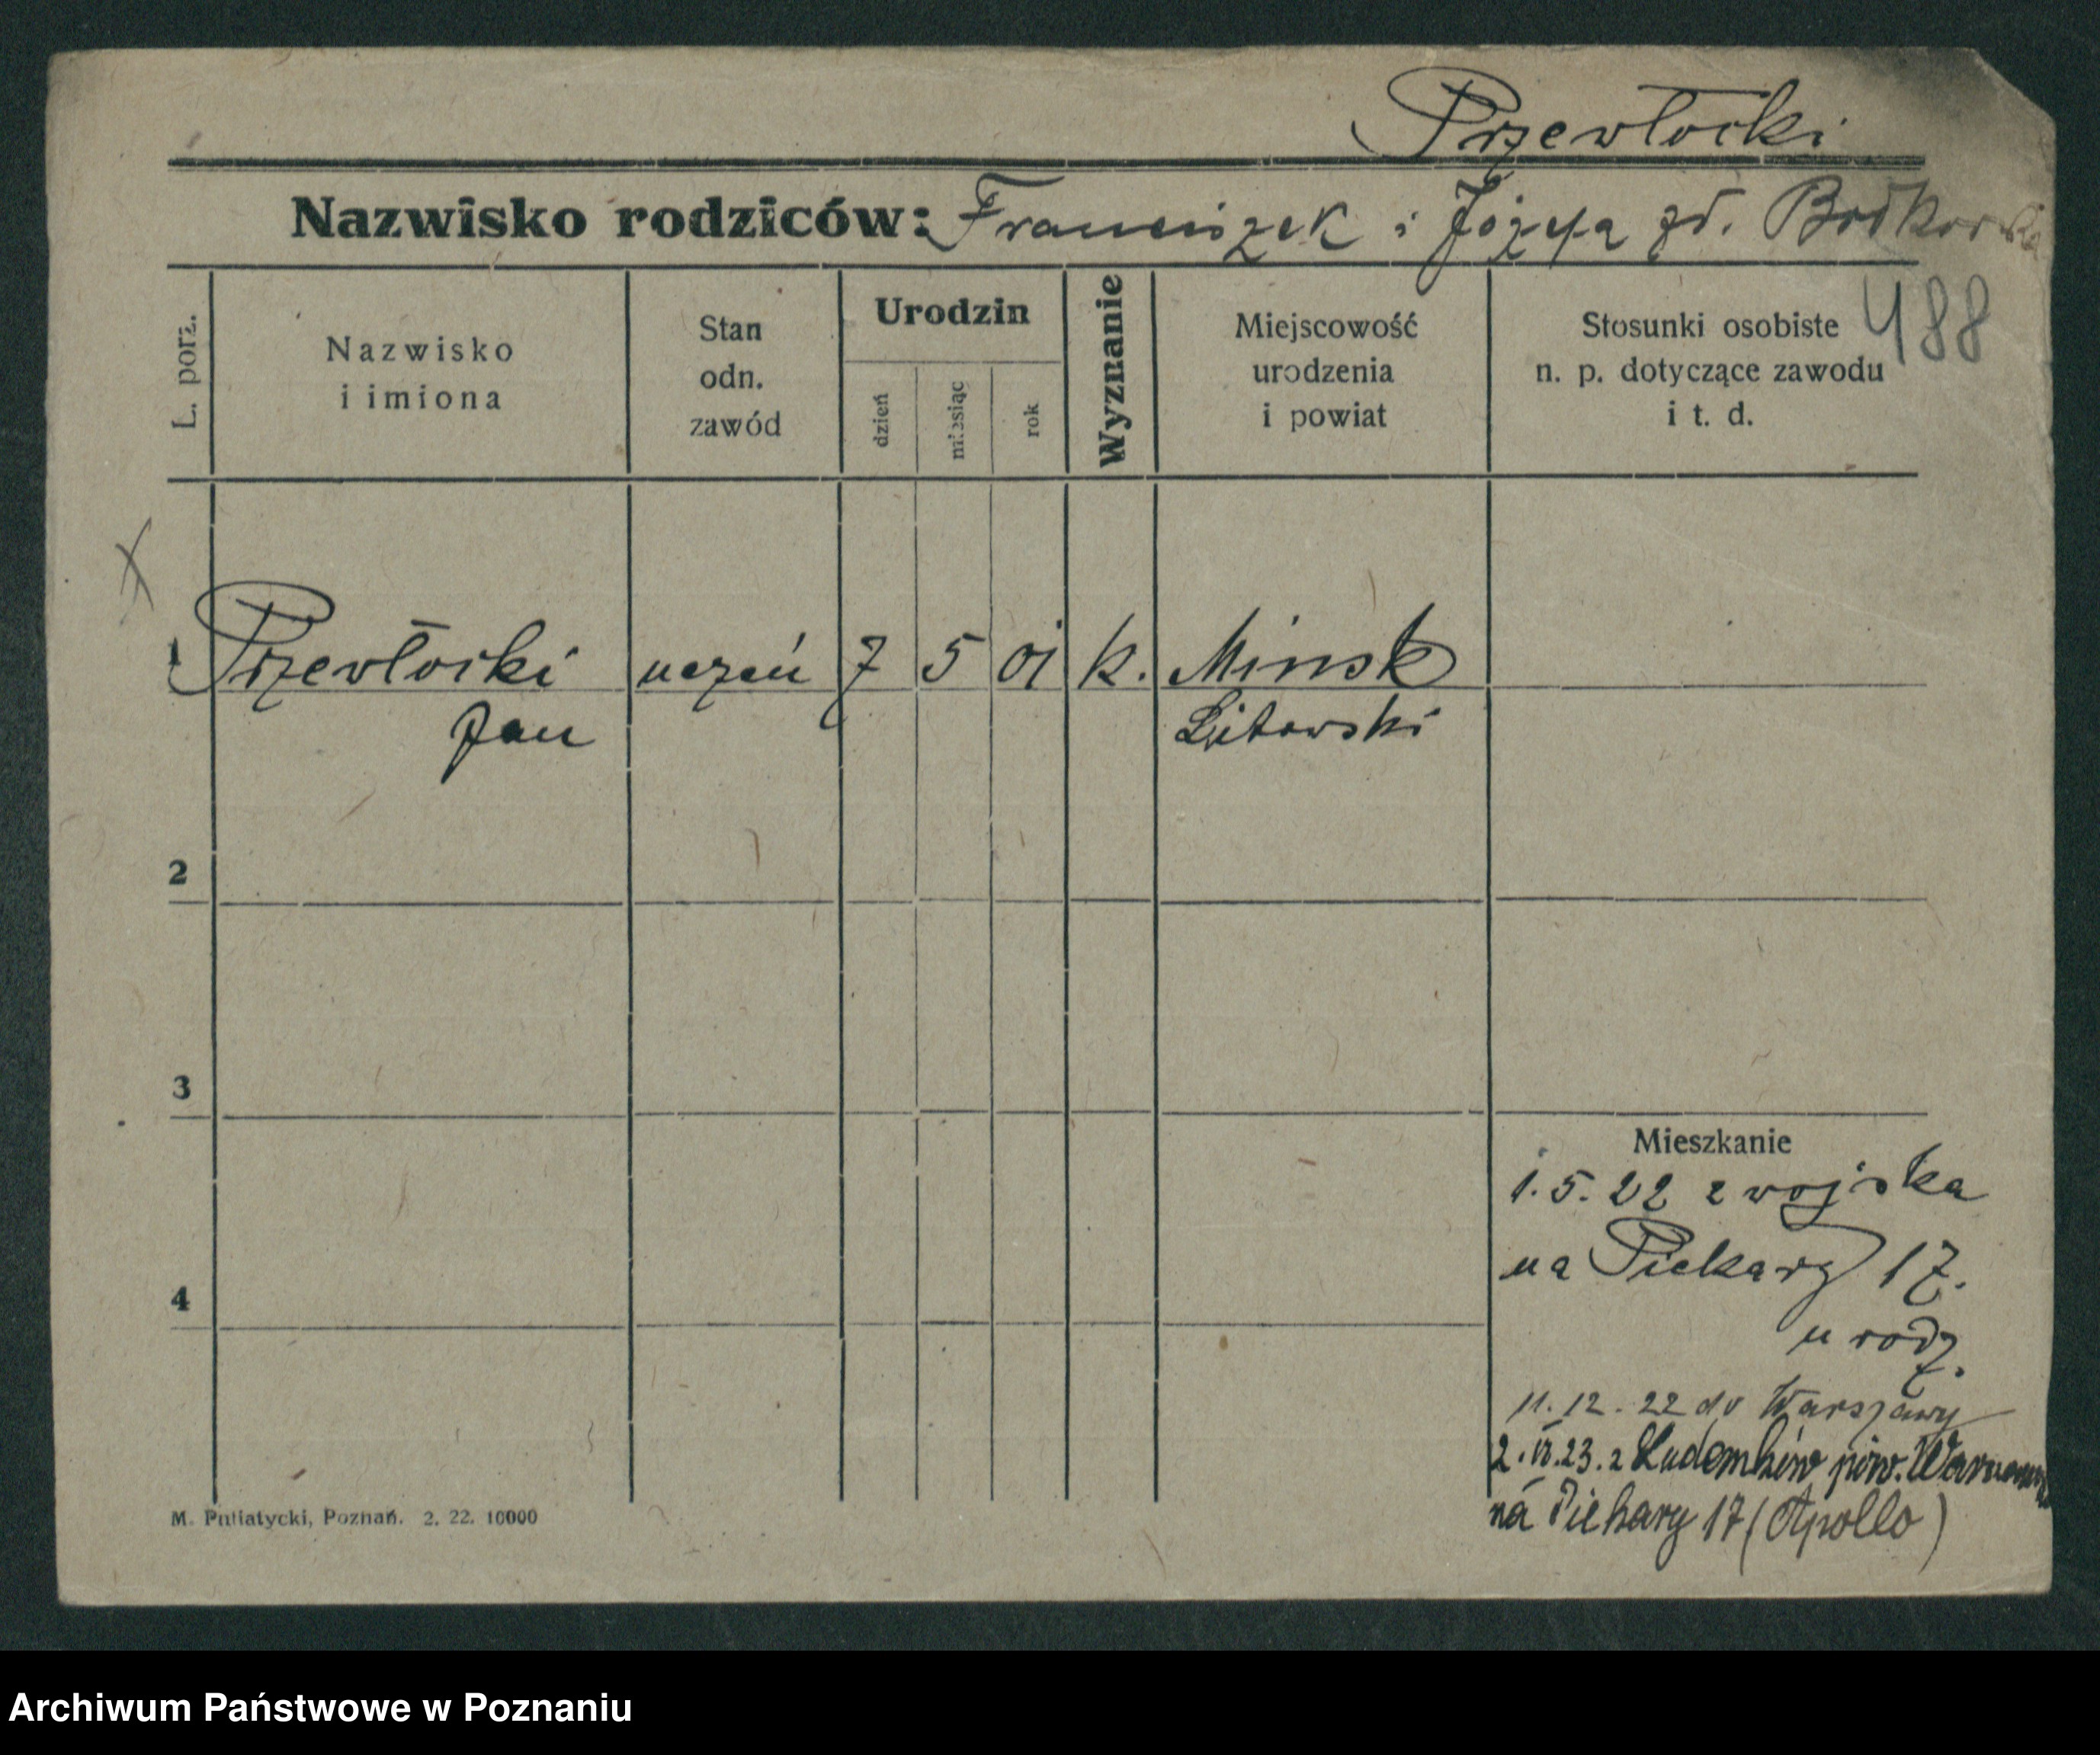 Przewłocki
Nazwisko rodziców: Franciszek i Józefa zd.
488
L. porz.
Nazwisko
i imiona
Stan
odn.
zawód
Urodzin
dzień
miesiąc
rok
Wyznanie
Miejscowość
urodzenia
i powiat
Stosunki osobiste
n. p. dotyczące zawodu
i t. d.
1 Przewłocki uczeń 7 5 01 k. Minsk
Jan Litowski
2
3
4
Mieszkanie
1. 5. 22 z wojska
na Piekary 17.
u rodz.
11. 12. 22 do Warszawy
23. z pow.
na Piekary 17 (Apollo)
M. Putiatycki, Poznań. 2. 22. 10000
Archiwum Państwowe w Poznaniu